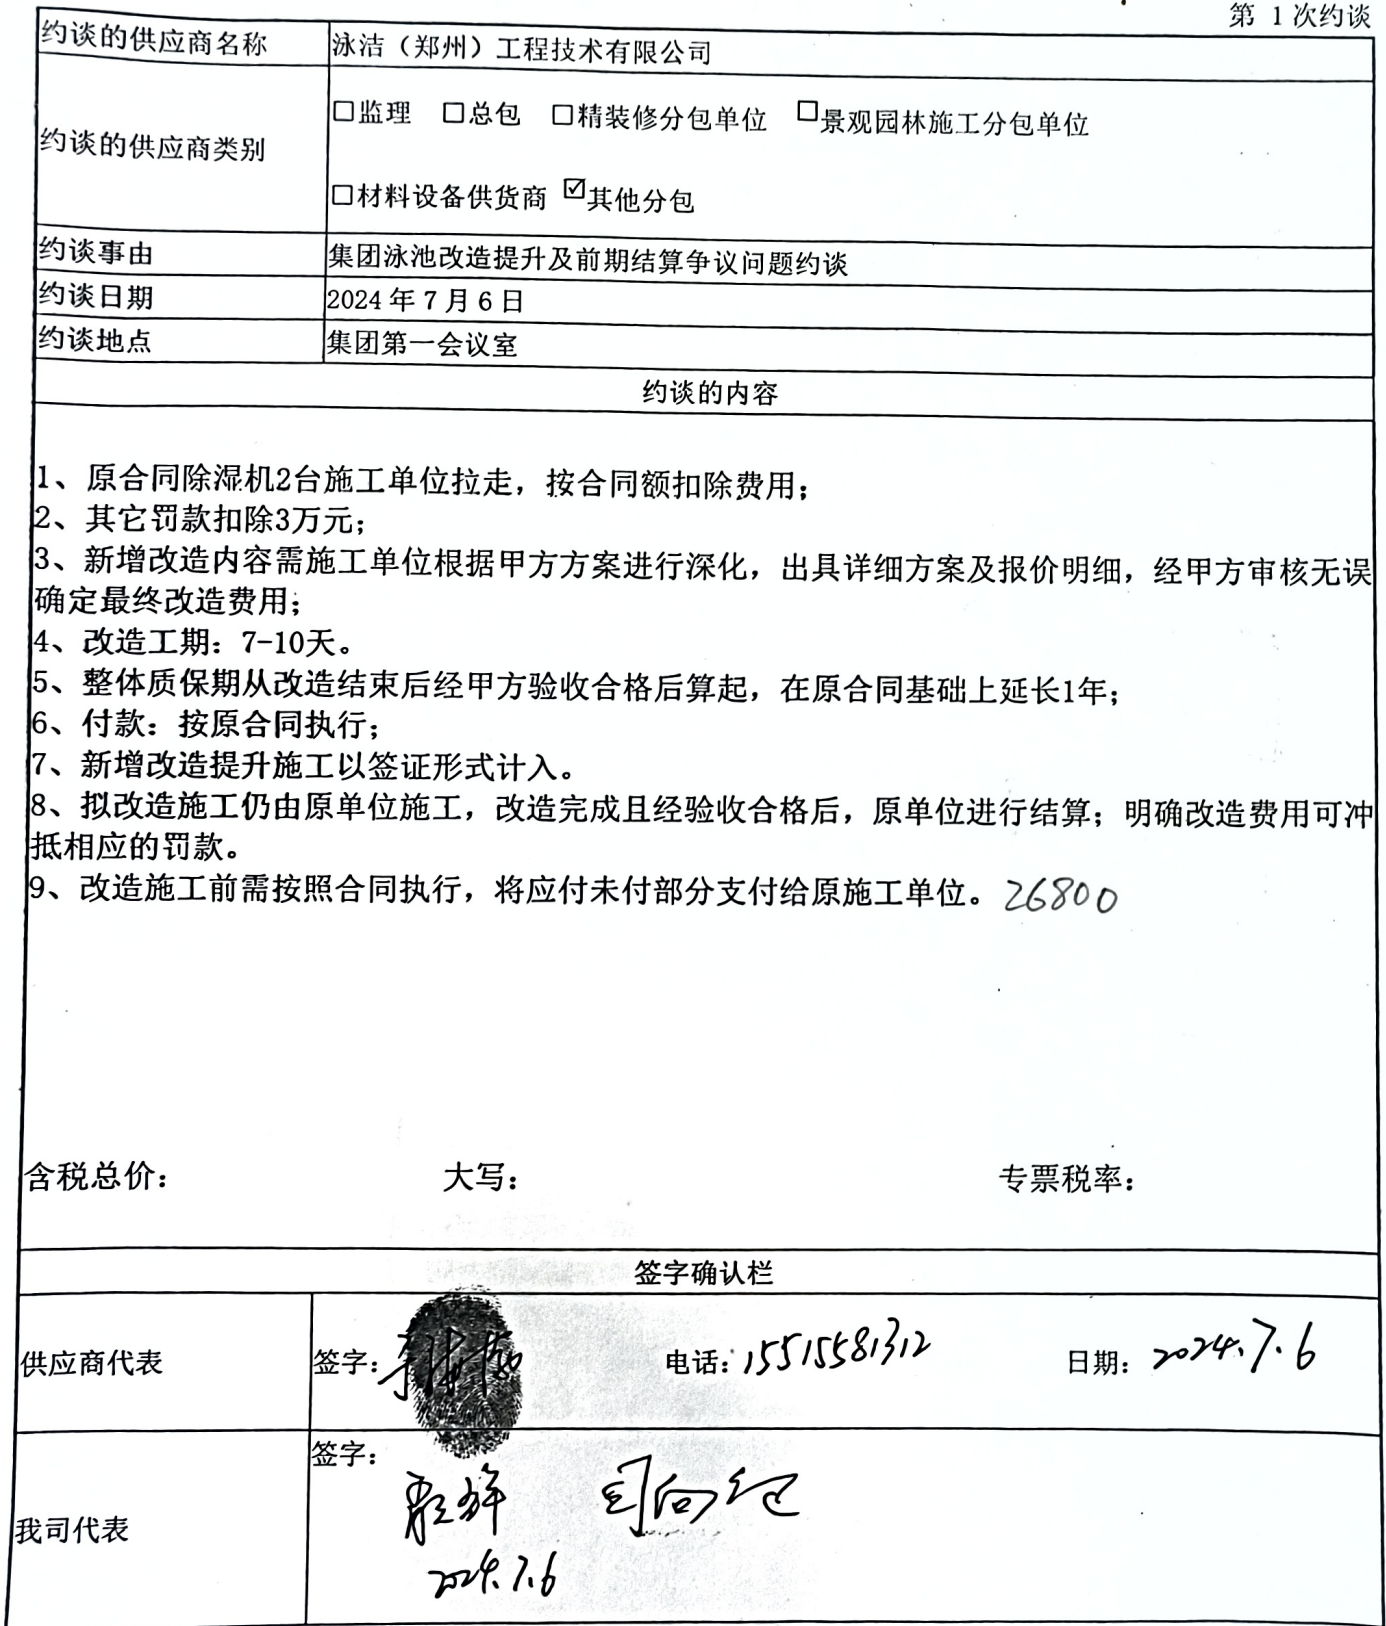 第 1 次约谈
约谈的供应商名称 泳洁（郑州）工程技术有限公司
约谈的供应商类别
□监理 □总包 □精装修分包单位 □景观园林施工分包单位
□材料设备供货商 ☑其他分包
约谈事由 集团泳池改造提升及前期结算争议问题约谈
约谈日期 2024 年 7 月 6 日
约谈地点 集团第一会议室
约谈的内容
1、原合同除湿机2台施工单位拉走，按合同额扣除费用；
2、其它罚款扣除3万元；
3、新增改造内容需施工单位根据甲方方案进行深化，出具详细方案及报价明细，经甲方审核无误
确定最终改造费用；
4、改造工期：7-10天。
5、整体质保期从改造结束后经甲方验收合格后算起，在原合同基础上延长1年；
6、付款：按原合同执行；
7、新增改造提升施工以签证形式计入。
8、拟改造施工仍由原单位施工，改造完成且经验收合格后，原单位进行结算；明确改造费用可冲
抵相应的罚款。
9、改造施工前需按照合同执行，将应付未付部分支付给原施工单位。26800
含税总价： 大写： 专票税率：
签字确认栏
供应商代表 签字： 电话：15515581312 日期：2024.7.6
签字：
我司代表
2024.7.6